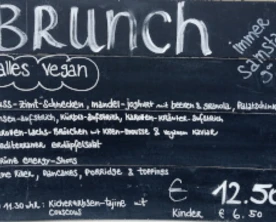 BRUNCH
immer
Samstag
alles vegan
uss-Zimt-Schnecken, Mandel-Joghurt mit Beeren & Granola, Palatschink
sen-Aufstrich, Kürbis-Aufstrich, Karotten-Kräuter-Aufstrich
Karotten-Lachs-Brötchen mit Kren-Mousse & veganem Kaviar
editerraner Erdäpfelsalat
rüne Energy-Shots
Pancakes, Porridge & Toppings
€ 12.50
11.30 Uhr: Kichererbsen-Tajine mit
Couscous
Kinder € 6.50